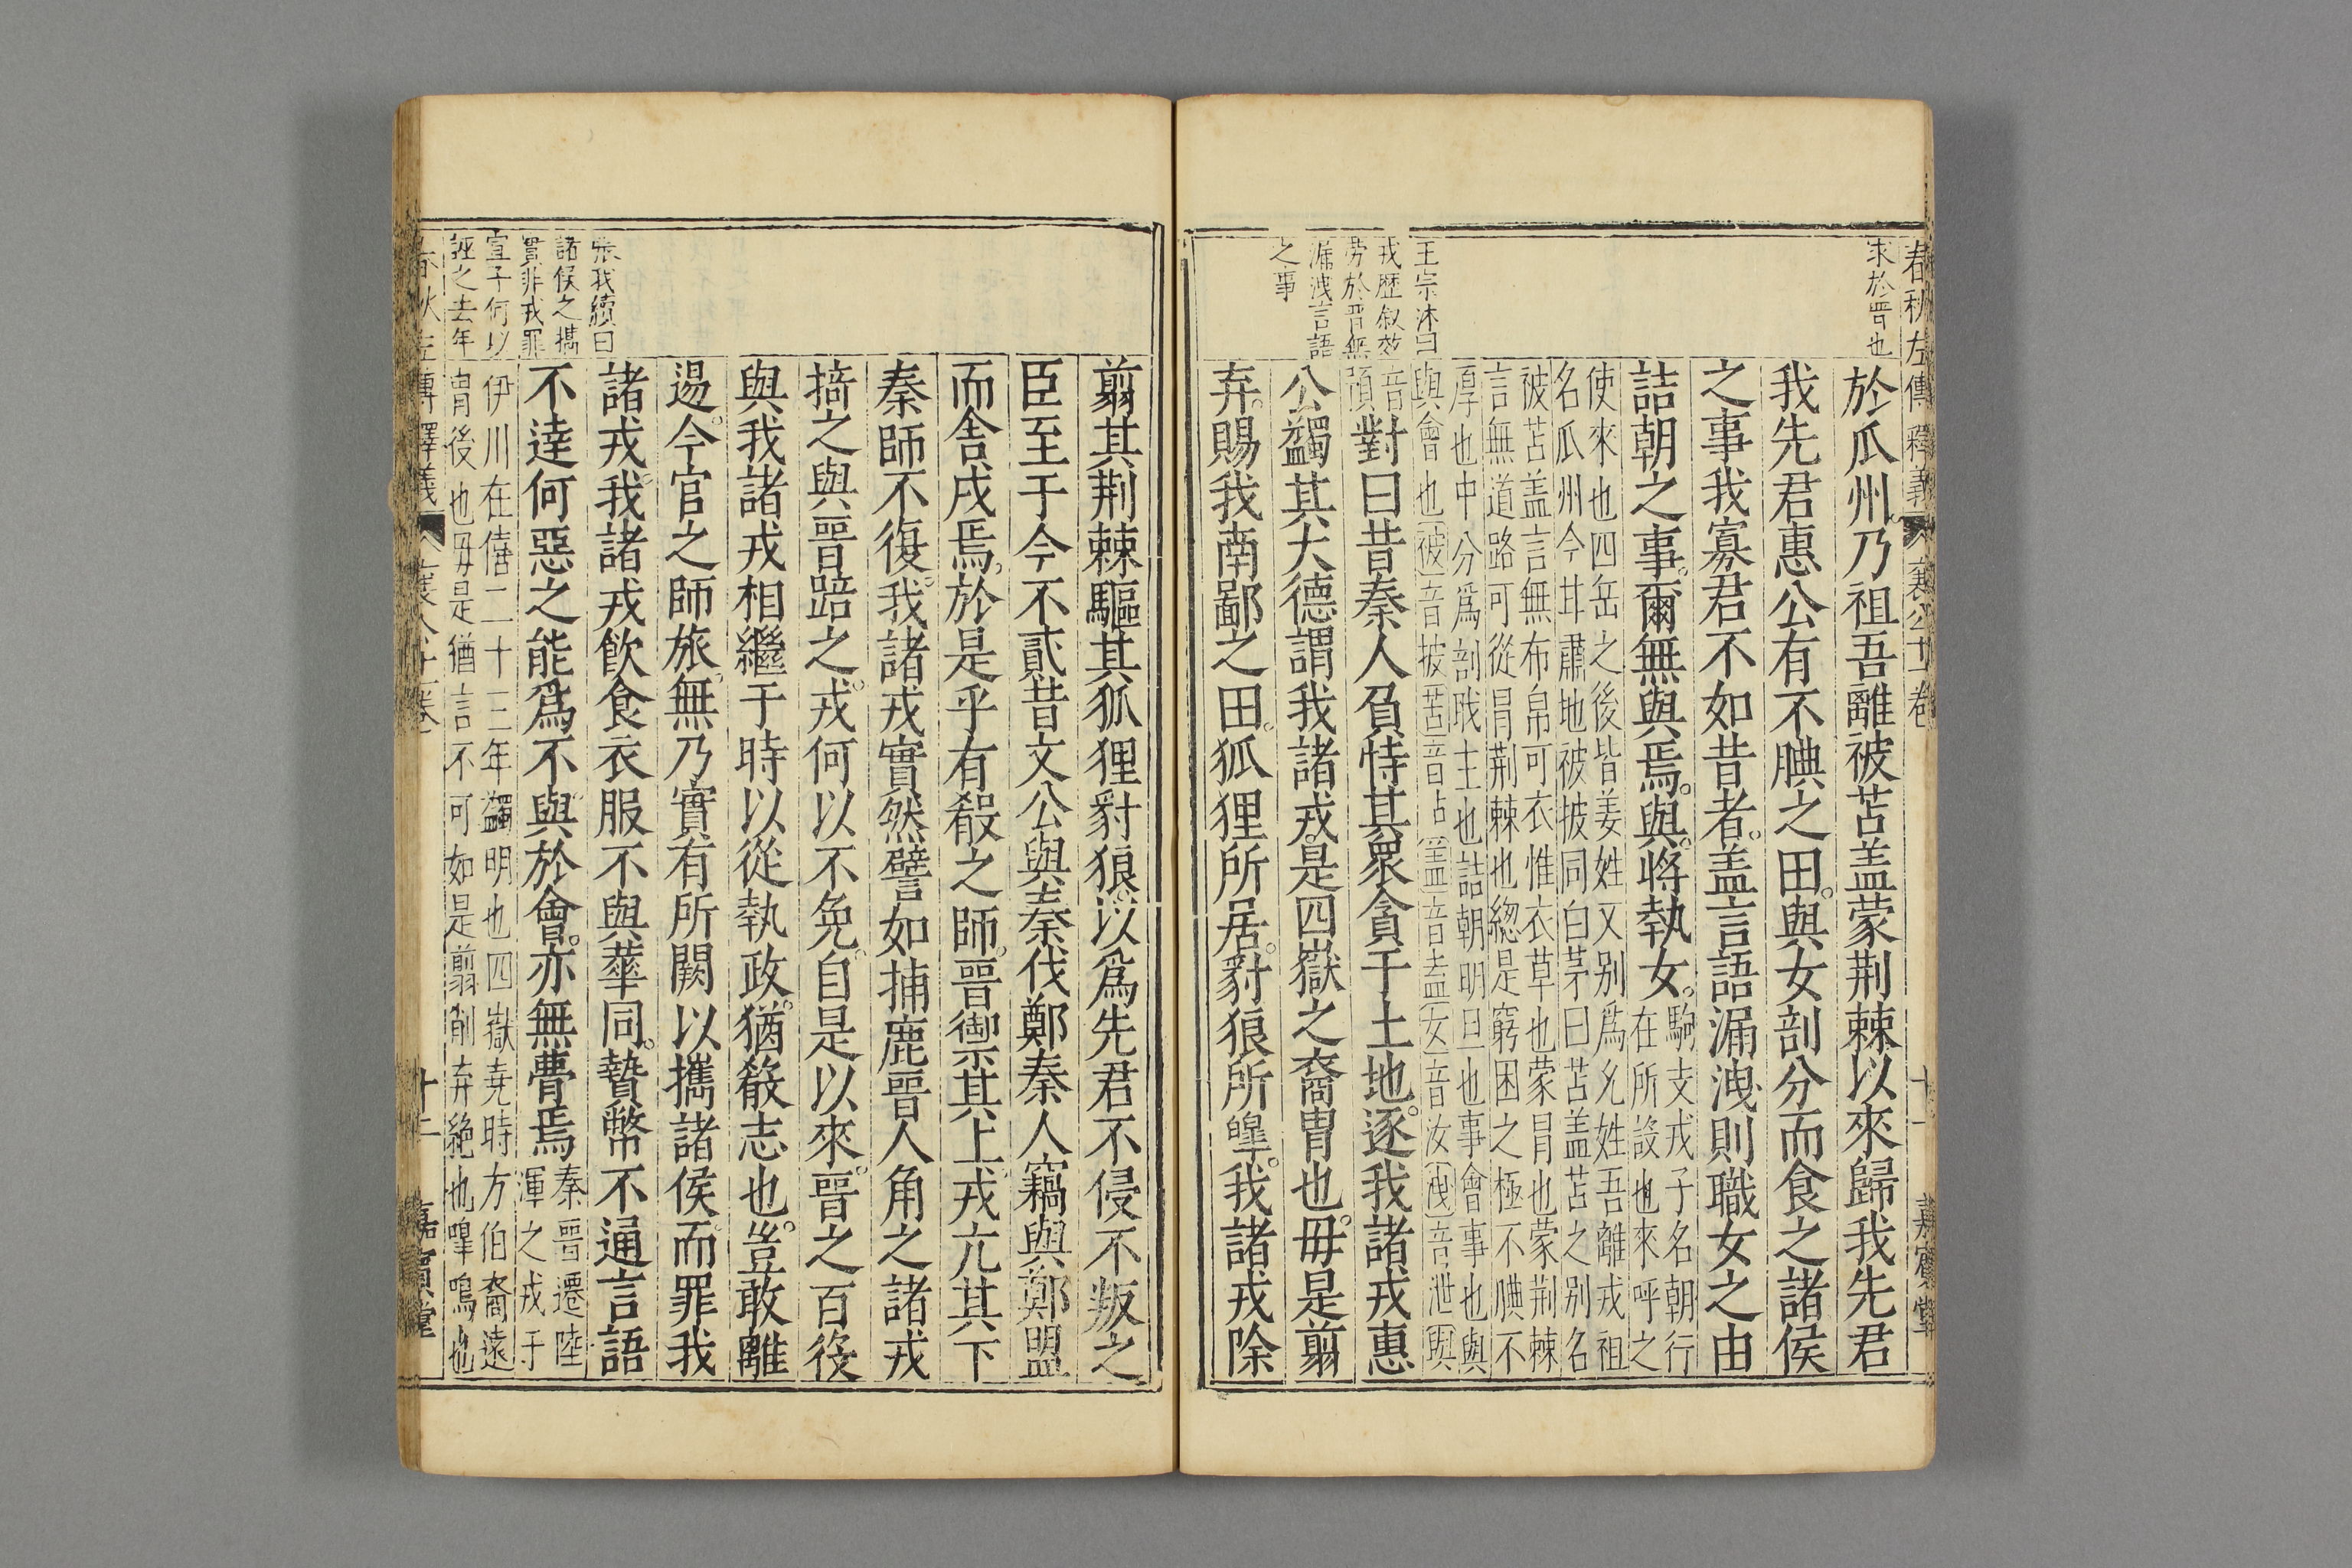 春秋左傳釋義 襄公十一卷 十一 嘉賓堂
求於晋也
於瓜州乃祖吾離被苫盖蒙荆棘以來歸我先君
我先君惠公有不腆之田。與女剖分而食之諸侯
之事我寡君不如昔者。盖言語漏洩則職女之由
詰朝之事。爾無與焉。與。將執女。駒支戎子名朝行
在所設也來呼之
使來也四岳之後皆姜姓又别爲允姓吾離戎祖
名瓜州今甘肅地被披同白茅曰苫盖苫之别名
被苫盖言無布帛可衣惟衣草也蒙冒也蒙荆棘
言無道路可從冒荆棘也緫是窮困之極不腆不
厚也中分爲剖戝主也詰朝明旦也事會事也與
與會也被音披苫音占盖音盍女音汝洩音泄與
音
王宗沐曰
戎歷叙效
勞於晋無
漏洩言語
之事
對曰昔秦人負恃其眾貪于土地。逐我諸戎惠
公蠲其大德謂我諸戎。是四嶽之裔冑也。毋是翦
弃。賜我南鄙之田。狐狸所居。豺狼所嘷。我諸戎除
翦其荆棘驅其狐狸豺狼。以爲先君不侵不叛之
臣至于今不貳昔文公與秦伐鄭秦人竊與鄭盟
而舍戍焉。於是乎有殽之師。晋禦其上。戎亢其下
秦師不復。我諸戎實然譬如捕鹿晋人角之諸戎
掎之與晋踣之。戎何以不免。自是以來。晋之百役
與我諸戎相繼于時以從執政。猶殽志也。豈敢離
逷。今官之師旅。無乃實有所闕以攜諸侯。而罪我
諸戎。我諸戎飲食衣服不與華同。贄幣不通言語
張我續曰
諸侯之攜
貳非戎罪
宣子何以
誣之去年
不達何惡之能爲。不與於會。亦無瞢焉秦晋遷陸
渾之戎于
伊川在僖二十三年蠲明也四嶽堯時方伯裔遠
冑後也毋是猶言不可如是翦削弃絶也嘷鳴也
春秋左傳釋義 襄公十一卷 十二 嘉賓堂